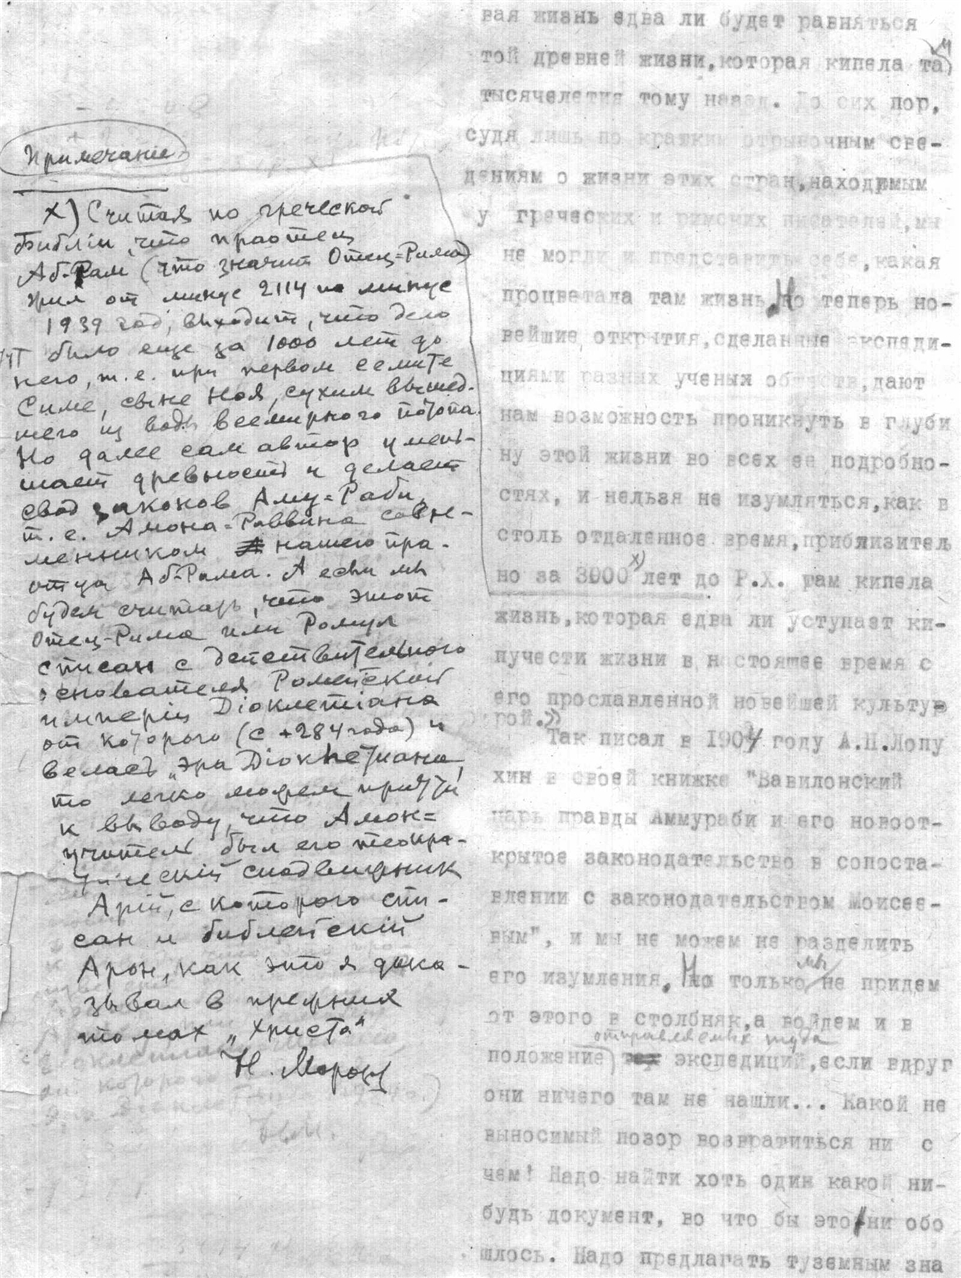 Примечание
х) Считая по греческой
Библіи, что праотец
Аб-Рам (что значит Отец=Рима)
жил от минус 2114 по минус
1939 год, выходит, что дело
было еще за 1000 лет до
него, т.е. при первом семите
Симе, сыне Ноя, сухим вышед-
шего из воды всемирного потопа.
Но далее сам автор умень-
шает древность и делает
свод законов Аму=Раби,
т.е. Амона=Раввина совре-
менником нашего пра-
отца Аб-Рама. А если мы
будем считать, что этот
Отец-Рима или Ромул
списан с действительного
основателя Ромейской
имперіи Діоклетіана
от которого (с +284 года) и
велась „эра Діоклетіана"
то легко можем притти
к выводу, что Амон=
учитель был его теокра-
тическій сподвижник
Арій, с которого спи-
сан и библейскій
Арон, как это я дока-
зывал в прежних
томах „Христа"
Н. Морозов
вая жизнь едва ли будет равняться
той древней жизни,которая кипела там
тысячелетия тому назад. До сих пор,
судя лишь по кратким отрывочным све-
дениям о жизни этих стран,находимым
у греческих и римских писателей,мы
не могли и представить себе,какая
процветала там жизнь. Но теперь но-
вейшие открытия,сделанные экспеди-
циями разных ученых обществ,дают
нам возможность проникнуть в глуби
ну этой жизни во всех ее подробно-
стях, и нельзя не изумляться,как в
столь отдаленное время,приблизитель
но за 3000 х) лет до Р.Х. там кипела
жизнь,которая едва ли уступает ки-
пучести жизни в настоящее время с
его прославленной новейшей культу
рой.»
Так писал в 1904 году А.П.Лопу
хин в своей книжке "Вавилонский
царь правды Аммураби и его новоот-
крытое законодательство в сопоста-
влении с законодательством Моисее-
вым", и мы не можем не разделить
его изумления. Но только мы не придем
от этого в столбняк,а войдем и в
положение отправляемых туда экспедиций,если вдруг
они ничего там не нашли... Какой не
выносимый позор возвратиться ни с
чем! Надо найти хоть один какой ни-
будь документ, во что бы это ни обо
шлось. Надо предлагать туземным зна